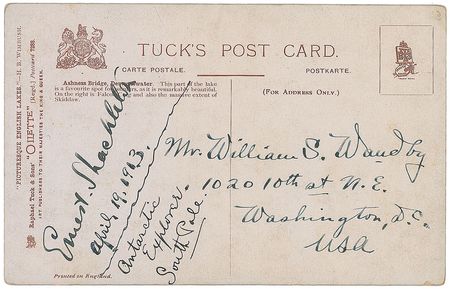 TUCK'S POST CARD.
CARTE POSTALE. POSTKARTE.
(FOR ADDRESS ONLY.)
Ashness Bridge, Derwentwater. This part of the lake
is a favourite spot for visitors, as it is remarkably beautiful.
On the right is Falcon Crag and also the massive extent of
Skiddaw.
"PICTURESQUE ENGLISH LAKES."—H. B. WIMBUSH.
Raphael Tuck & Sons' "OILETTE" [Regd.] Postcard 7288.
ART PUBLISHERS TO THEIR MAJESTIES THE KING & QUEEN.
Ernest Shackleton
April 19, 1913.
Antarctic
Explorer
South Pole
Mr. William S. Waudby
1020 10th st N.E.
Washington, D.C.
USA
Printed in England.